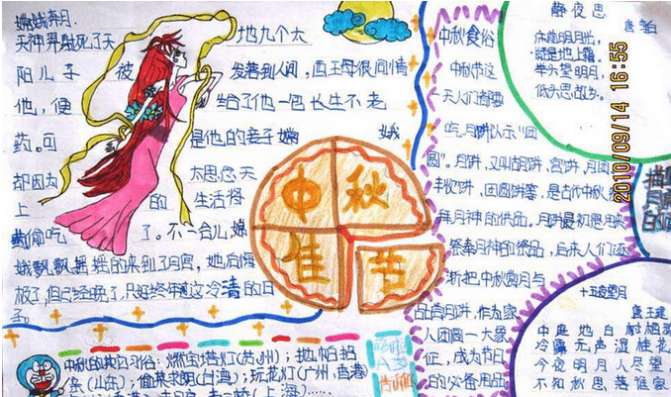 嫦娥奔月
天神羿射死了天
地九个太
阳儿子
被
发落到人间,西王母很同情
他,便
给了他一包长生不老
药。可
是他的妻子嫦
娥
却因为
太思念天
上
的
生活将
药偷吃
了。不一会儿嫦
娥飘飘摇摇的来到了月宫,她后悔
极了,但已经晚了,只好终年在这冷清的日
子
中秋佳节
中秋食俗
中秋节这
一天人们都要
吃月饼以示“团
圆”。月饼,又叫
丰收饼,团圆饼等,是古代中秋
拜月神的供品。月饼最初是用来
祭奉月神的祭品,后来人们逐
渐把中秋赏月与
品尝月饼,作为家
人团圆一大象
征,成为节日
的必备用品
静夜思
李白
床前明月光,
疑是地上霜。
举头望明月,
低头思故乡。
2010/09/14 16:55
十五夜望月
唐 王建
中庭地白树栖
冷露无声湿桂花
今夜月明人尽望,
不知秋思落谁家
中秋的其它习俗:燃宝塔灯(苏州);抛帕招
亲(山东);偷菜求郎(台湾);玩花灯(广州,香港)